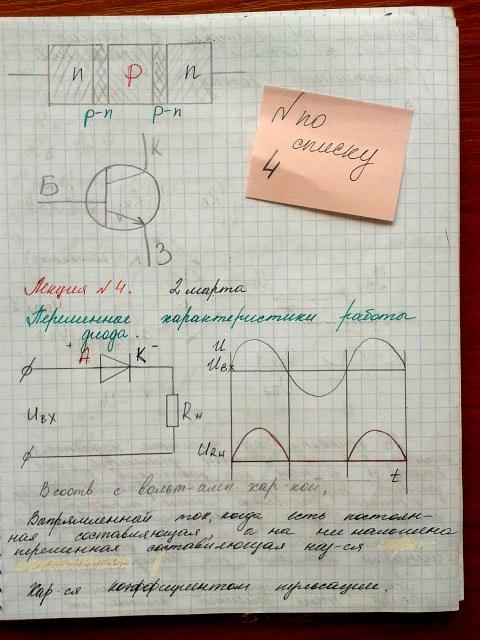 n p n
p-n p-n
N по
списку
4
К
Б
Э
Лекция N 4. 2 марта
Переменные характеристики работы
диода.
+ А К -
Uвх
Rн
U
Uвх
URн
t
В соотв с вольт-амп хар-кой,
Выпрямленной ток, когда есть постоян-
ная составляющая, а на нее наложена
переменная составляющая наз-ся
Хар-ся коэффициентом пульсации.